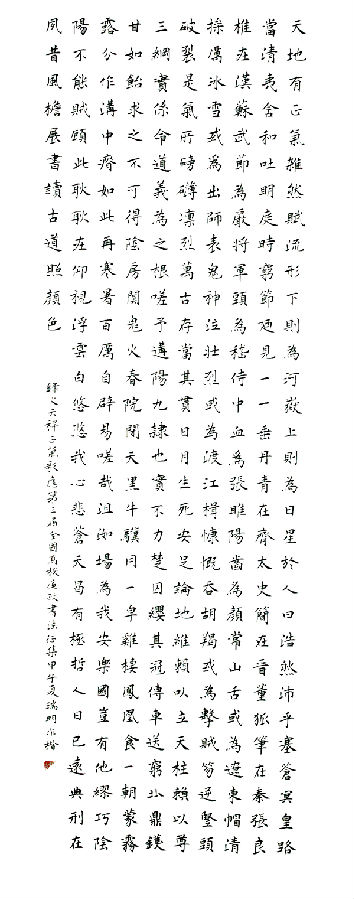 天地有正氣雜然賦流形下則為河嶽上則為日星於人曰浩然沛乎塞蒼冥皇路
當清夷含和吐明庭時窮節迺見一一垂丹青在齊太史簡在晉董狐筆在秦張良
椎在漢蘇武節為嚴將軍頭為嵇侍中血為張睢陽齒為顏常山舌或為遼東帽清
操厲冰雪或為出師表鬼神泣壯烈或為渡江楫慷慨吞胡羯或為擊賊笏逆豎頭
破裂是氣所磅礴凜烈萬古存當其貫日月生死安足論地維賴以立天柱賴以尊
三綱實係命道義為之根嗟予遘陽九隸也實不力楚囚纓其冠傳車送窮北鼎鑊
甘如飴求之不可得陰房闃鬼火春院閟天黑牛驥同一皁雞棲鳳凰食一朝蒙霧
露分作溝中瘠如此再寒暑百厲自辟易嗟哉沮洳場為我安樂國豈有他繆巧陰
陽不能賊顧此耿耿在仰視浮雲白悠悠我心悲蒼天曷有極哲人日已遠典刑在
夙昔風檐展書讀古道照顏色
錄文天祥正氣歌應第三屆全國高校廉政書法征集甲午夏瑞明